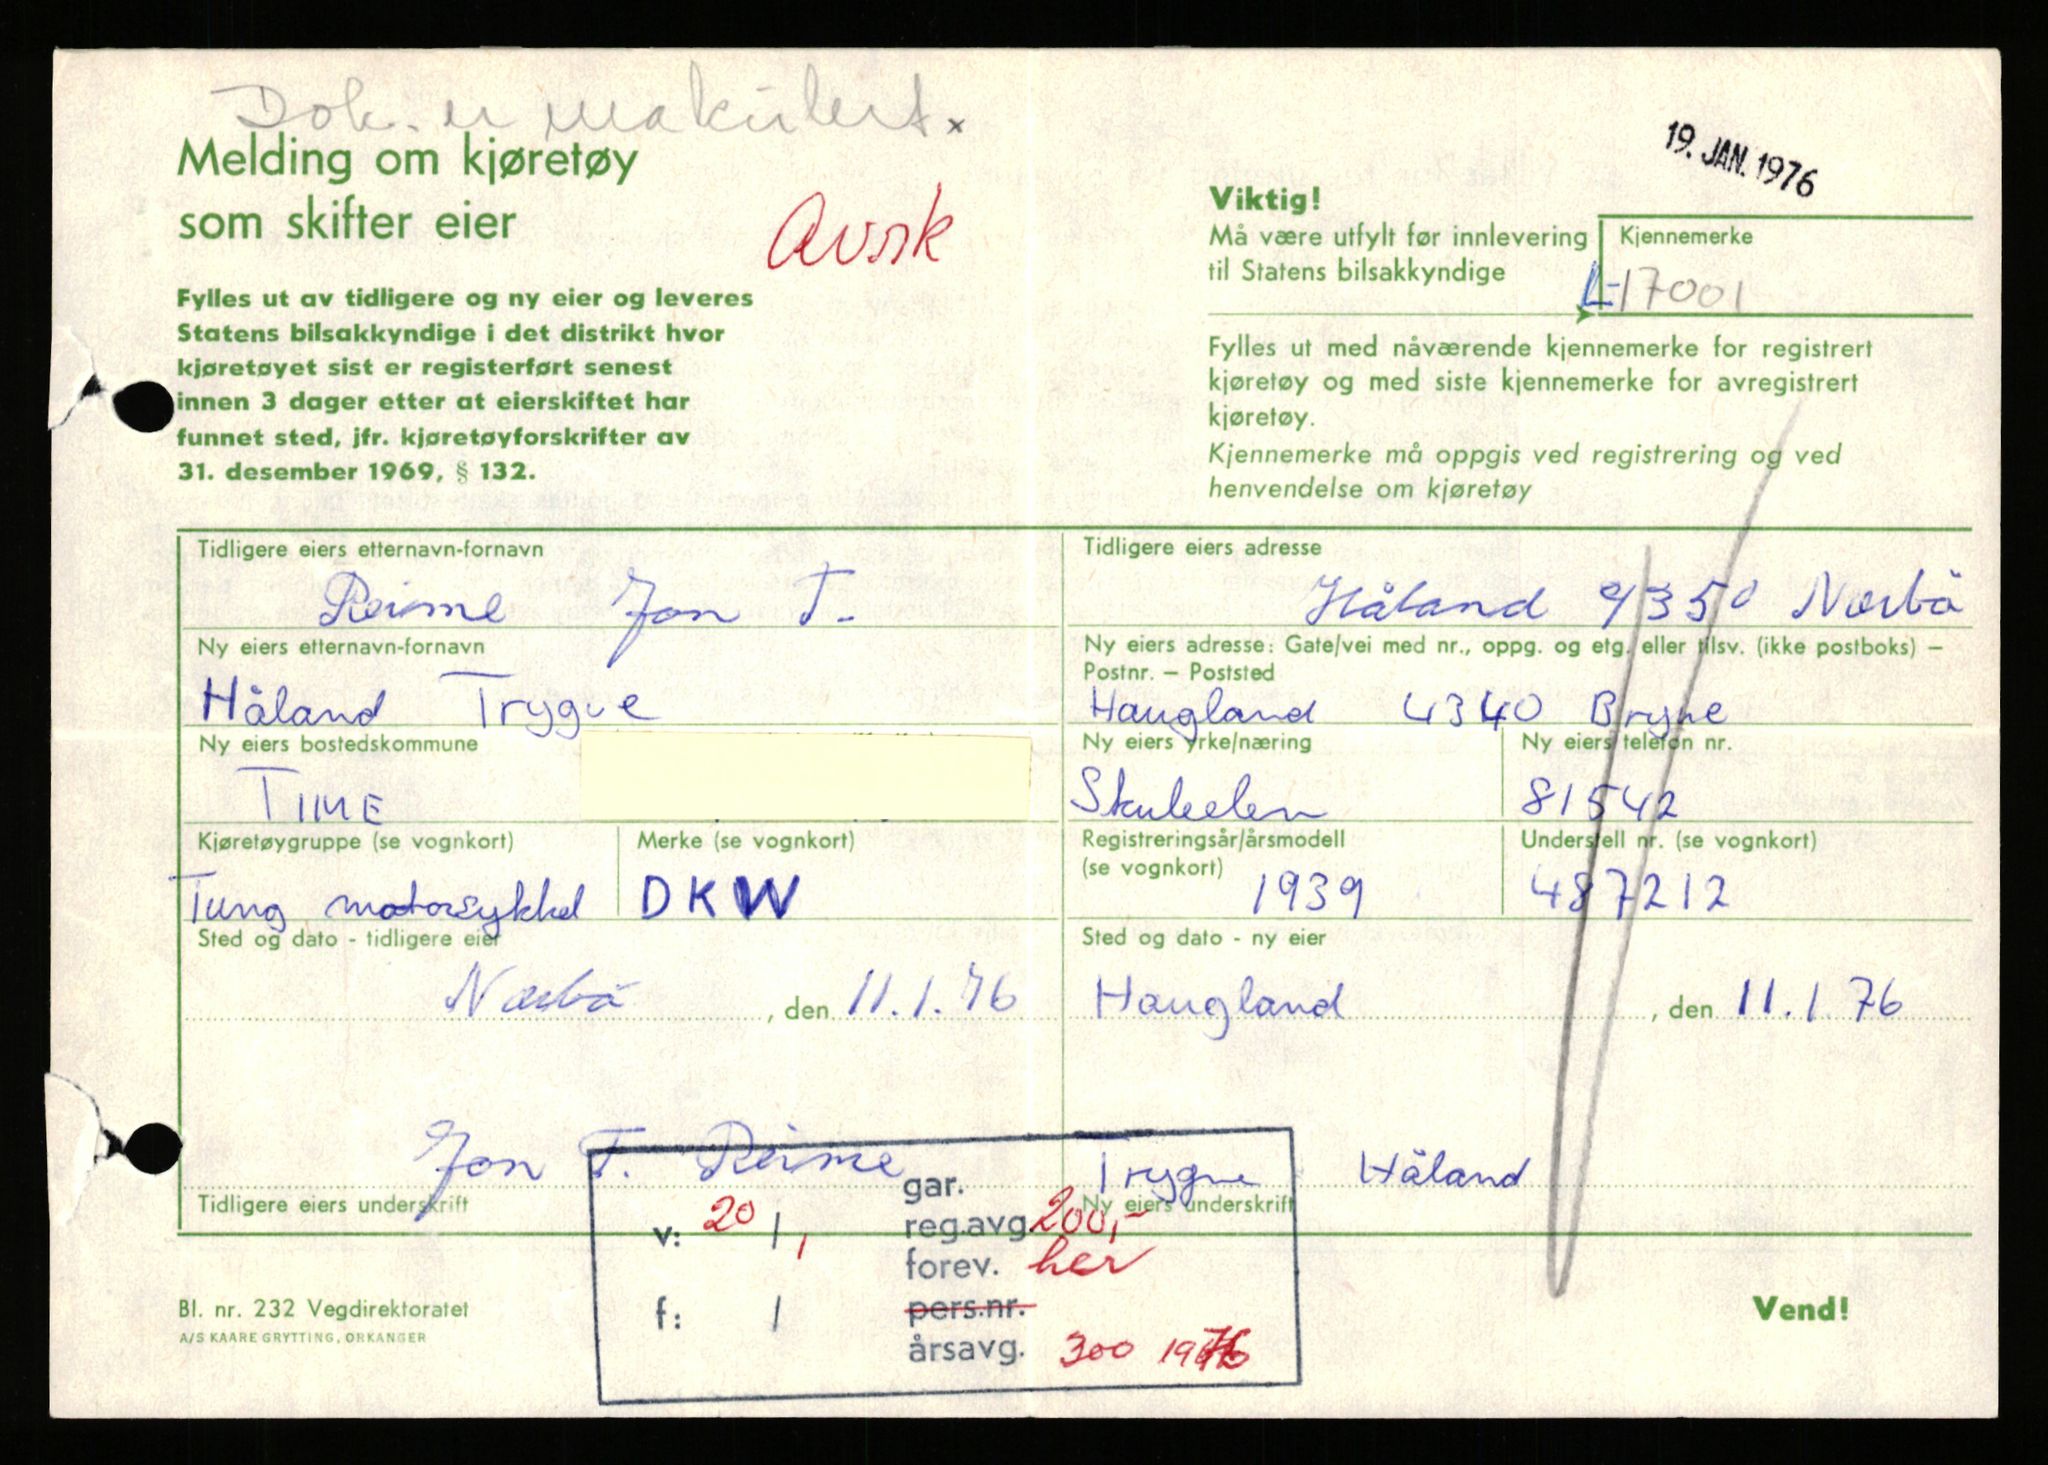 Dok. er makulert.
Melding om kjøretøy
som skifter eier
Avsk
19. JAN. 1976
Fylles ut av tidligere og ny eier og leveres
Statens bilsakkyndige i det distrikt hvor
kjøretøyet sist er registerført senest
innen 3 dager etter at eierskiftet har
funnet sted, jfr. kjøretøyforskrifter av
31. desember 1969, § 132.
Viktig!
Må være utfylt før innlevering
til Statens bilsakkyndige
Kjennemerke
L-17001
Fylles ut med nåværende kjennemerke for registrert
kjøretøy og med siste kjennemerke for avregistrert
kjøretøy.
Kjennemerke må oppgis ved registrering og ved
henvendelse om kjøretøy
Tidligere eiers etternavn-fornavn
Reime Jon T.
Tidligere eiers adresse
Håland 4350 Nærbö
Ny eiers etternavn-fornavn
Håland Trygve
Ny eiers adresse: Gate/vei med nr., oppg. og etg. eller tilsv. (ikke postboks) –
Postnr. – Poststed
Haugland 4340 Bryne
Ny eiers bostedskommune
TIME
Ny eiers yrke/næring
Skuleelev
Ny eiers telefon nr.
81542
Kjøretøygruppe (se vognkort)
Tung motorsykkel
Merke (se vognkort)
DKW
Registreringsår/årsmodell
(se vognkort)
1939
Understell nr. (se vognkort)
487212
Sted og dato - tidligere eier
Nærbö, den 11.1.76
Sted og dato - ny eier
Haugland, den 11.1.76
Jon T. Reime
Tidligere eiers underskrift
Trygve Håland
Ny eiers underskrift
gar.
v: 20/1,
reg.avg. 200,-
forev. her
f: /
pers.nr.
årsavg. 300 1976
Bl. nr. 232 Vegdirektoratet
A/S KAARE GRYTTING, ORKANGER
Vend!